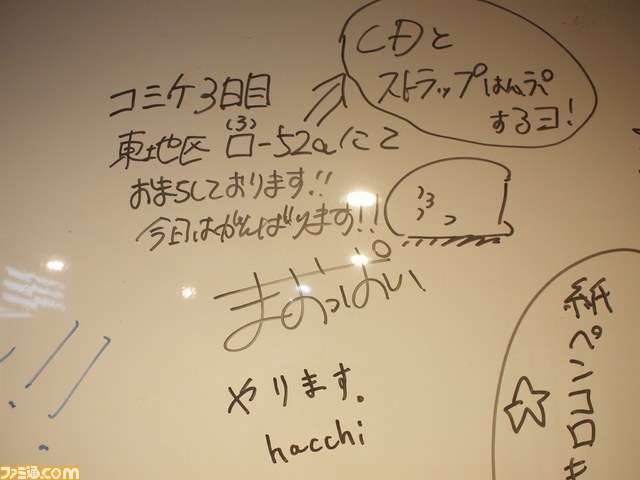 CDと
ストラップはんぷ
するヨ!
コミケ3日目
東地区 ロ-52aにて
(3)
おまちしております!!
今日はがんばります!!
まおっぱい
やります。
hacchi
紙ペンコロ
☆
ファミ通.com